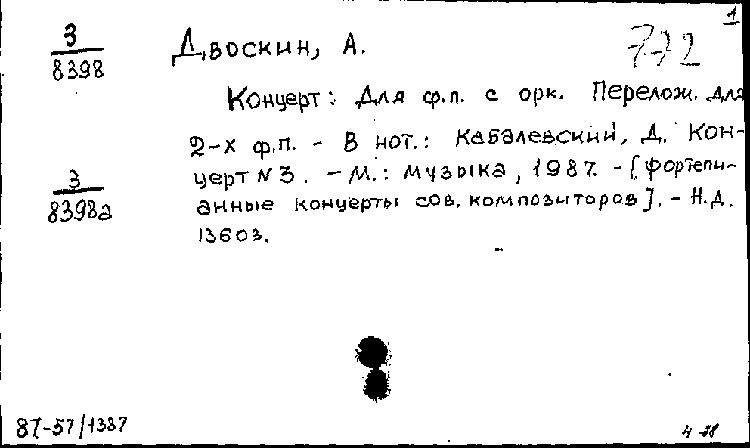 1
3
8398
Двоскин, А.
732
Концерт: Для ф.п. с орк. Перелож. для
2-х ф.п. - В нот.: Кабалевский, Д. Кон-
церт №3. - М.: Музыка, 1987. - [Фортепи-
анные концерты сов. композиторов]. - Н.д.
13603.
3
8398а
87-57/1337